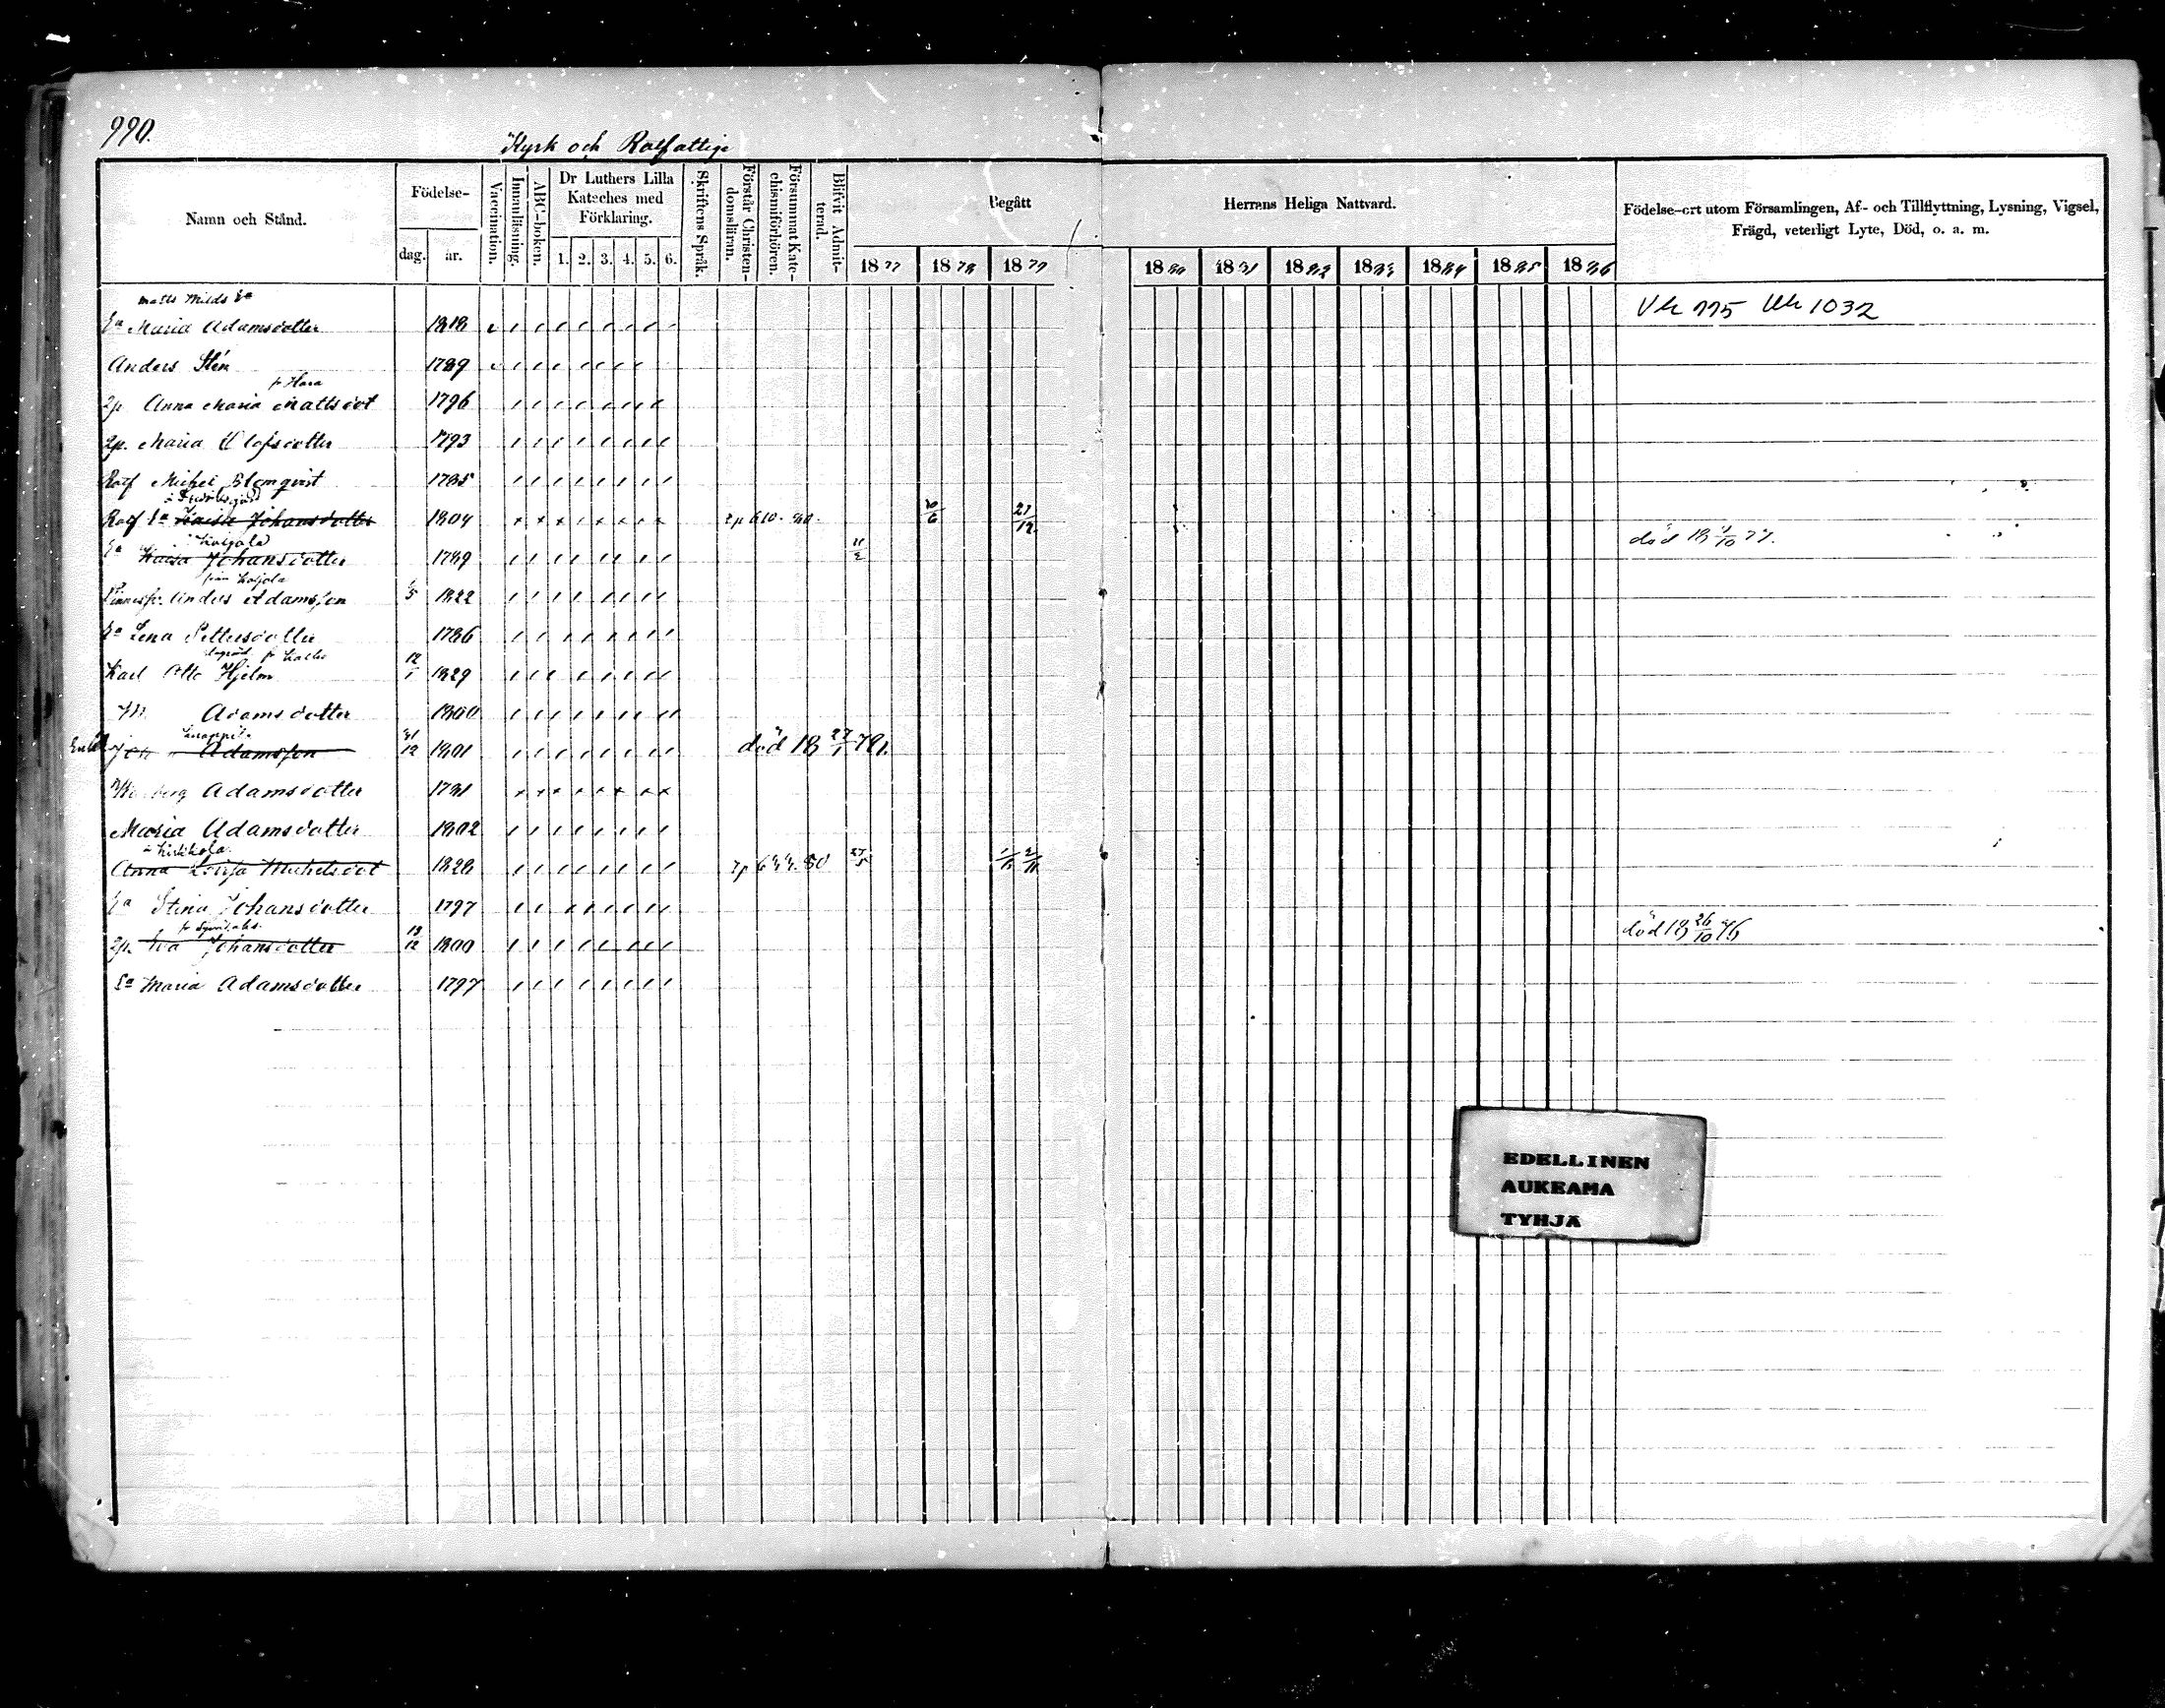 990.
Kyrk och Rotfattige
Namn och Stånd.
Födelse-
dag.
år.
Vaccination.
Innanläsning.
ABC-boken.
Dr Luthers Lilla
Kateches med
Förklaring.
1. 2. 3. 4. 5. 6.
Skriftens Språk.
Förstår Christen-
domsläran.
Försummat Kate-
chismiförhören.
Blifvit Admit-
terad.
Begått
Herrans Heliga Nattvard.
1877 1878 1879 1880 1881 1882 1883 1884 1885 1886
Födelse-ort utom Församlingen, Af- och Tillflyttning, Lysning, Vigsel,
Frägd, veterligt Lyte, Död, o. a. m.
Matts Milds Ea
Ea Maria Adamsdotter 1818
Anders Stén 1789
fr Hara
2p Anna Maria Mattsdot 1796
2p. Maria Olofsdotter 1793
Rotf Michel Blomqvist 1785
Rotf Ea Kaisa Johansdotter 1804 2p 610. 80. 30/6 21/12
Ea Kaisa Johansdotter 1789 död 18 4/10 77.
Anders Adamsson 1822
Ea Lena Pettersdotter 1786
Karl Otto Hjelm 12/1 1829
Adamsdotter 1800
Adamsson 31/12 1801 död 18 27/1 79.
Adamsdotter 1781
Maria Adamsdotter 1802
Anna Lovisa Michelsdot 1828
Ea Stina Johansdotter 1797
2p. Eva Johansdotter 13/12 1800 död 18 26/10 76
Ea Maria Adamsdotter 1797
EDELLINEN
AUKEAMA
TYHJÄ